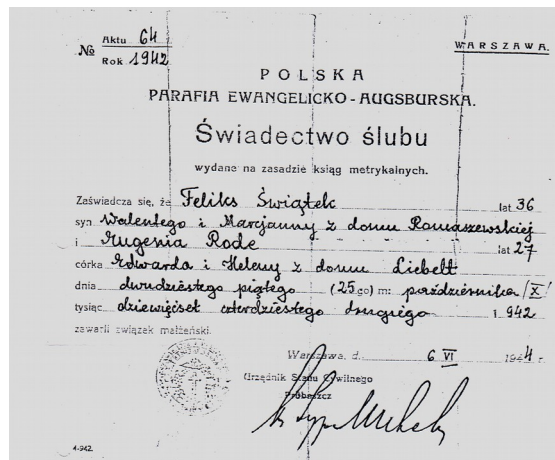 № Aktu 64
Rok 1942
WARSZAWA.
POLSKA
PARAFIA EWANGELICKO-AUGSBURSKA.
Świadectwo ślubu
wydane na zasadzie ksiąg metrykalnych.
Zaświadcza się, że Feliks Świątek lat 36
syn Walentego i Marcjanny z domu Romaszewskiej
i Eugenia Rode lat 27
córka Edwarda i Heleny z domu Liebelt
dnia dwudziestego piątego (25go) m: października /X/
tysiąc dziewięćset czterdziestego drugiego 1942
zawarli związek małżeński.
Warszawa, d. 6 VI 1944 r.
Urzędnik Stanu Cywilnego
Proboszcz
4-942